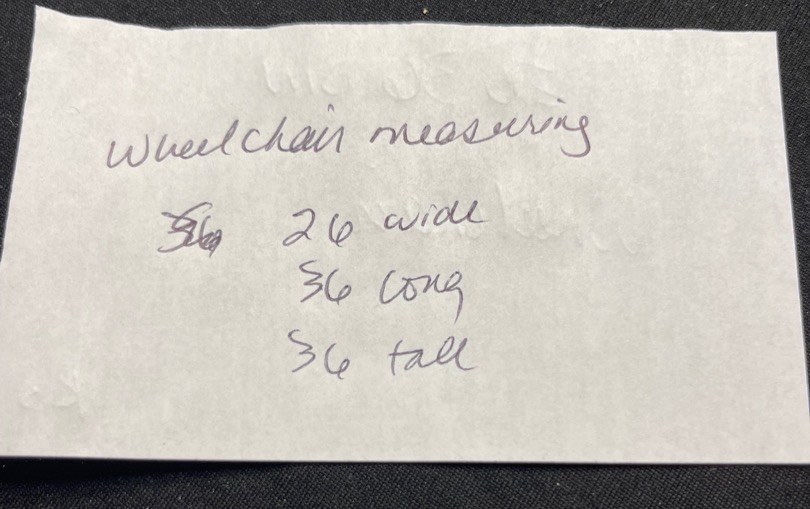 Wheelchair measuring
26 wide
36 long
36 tall